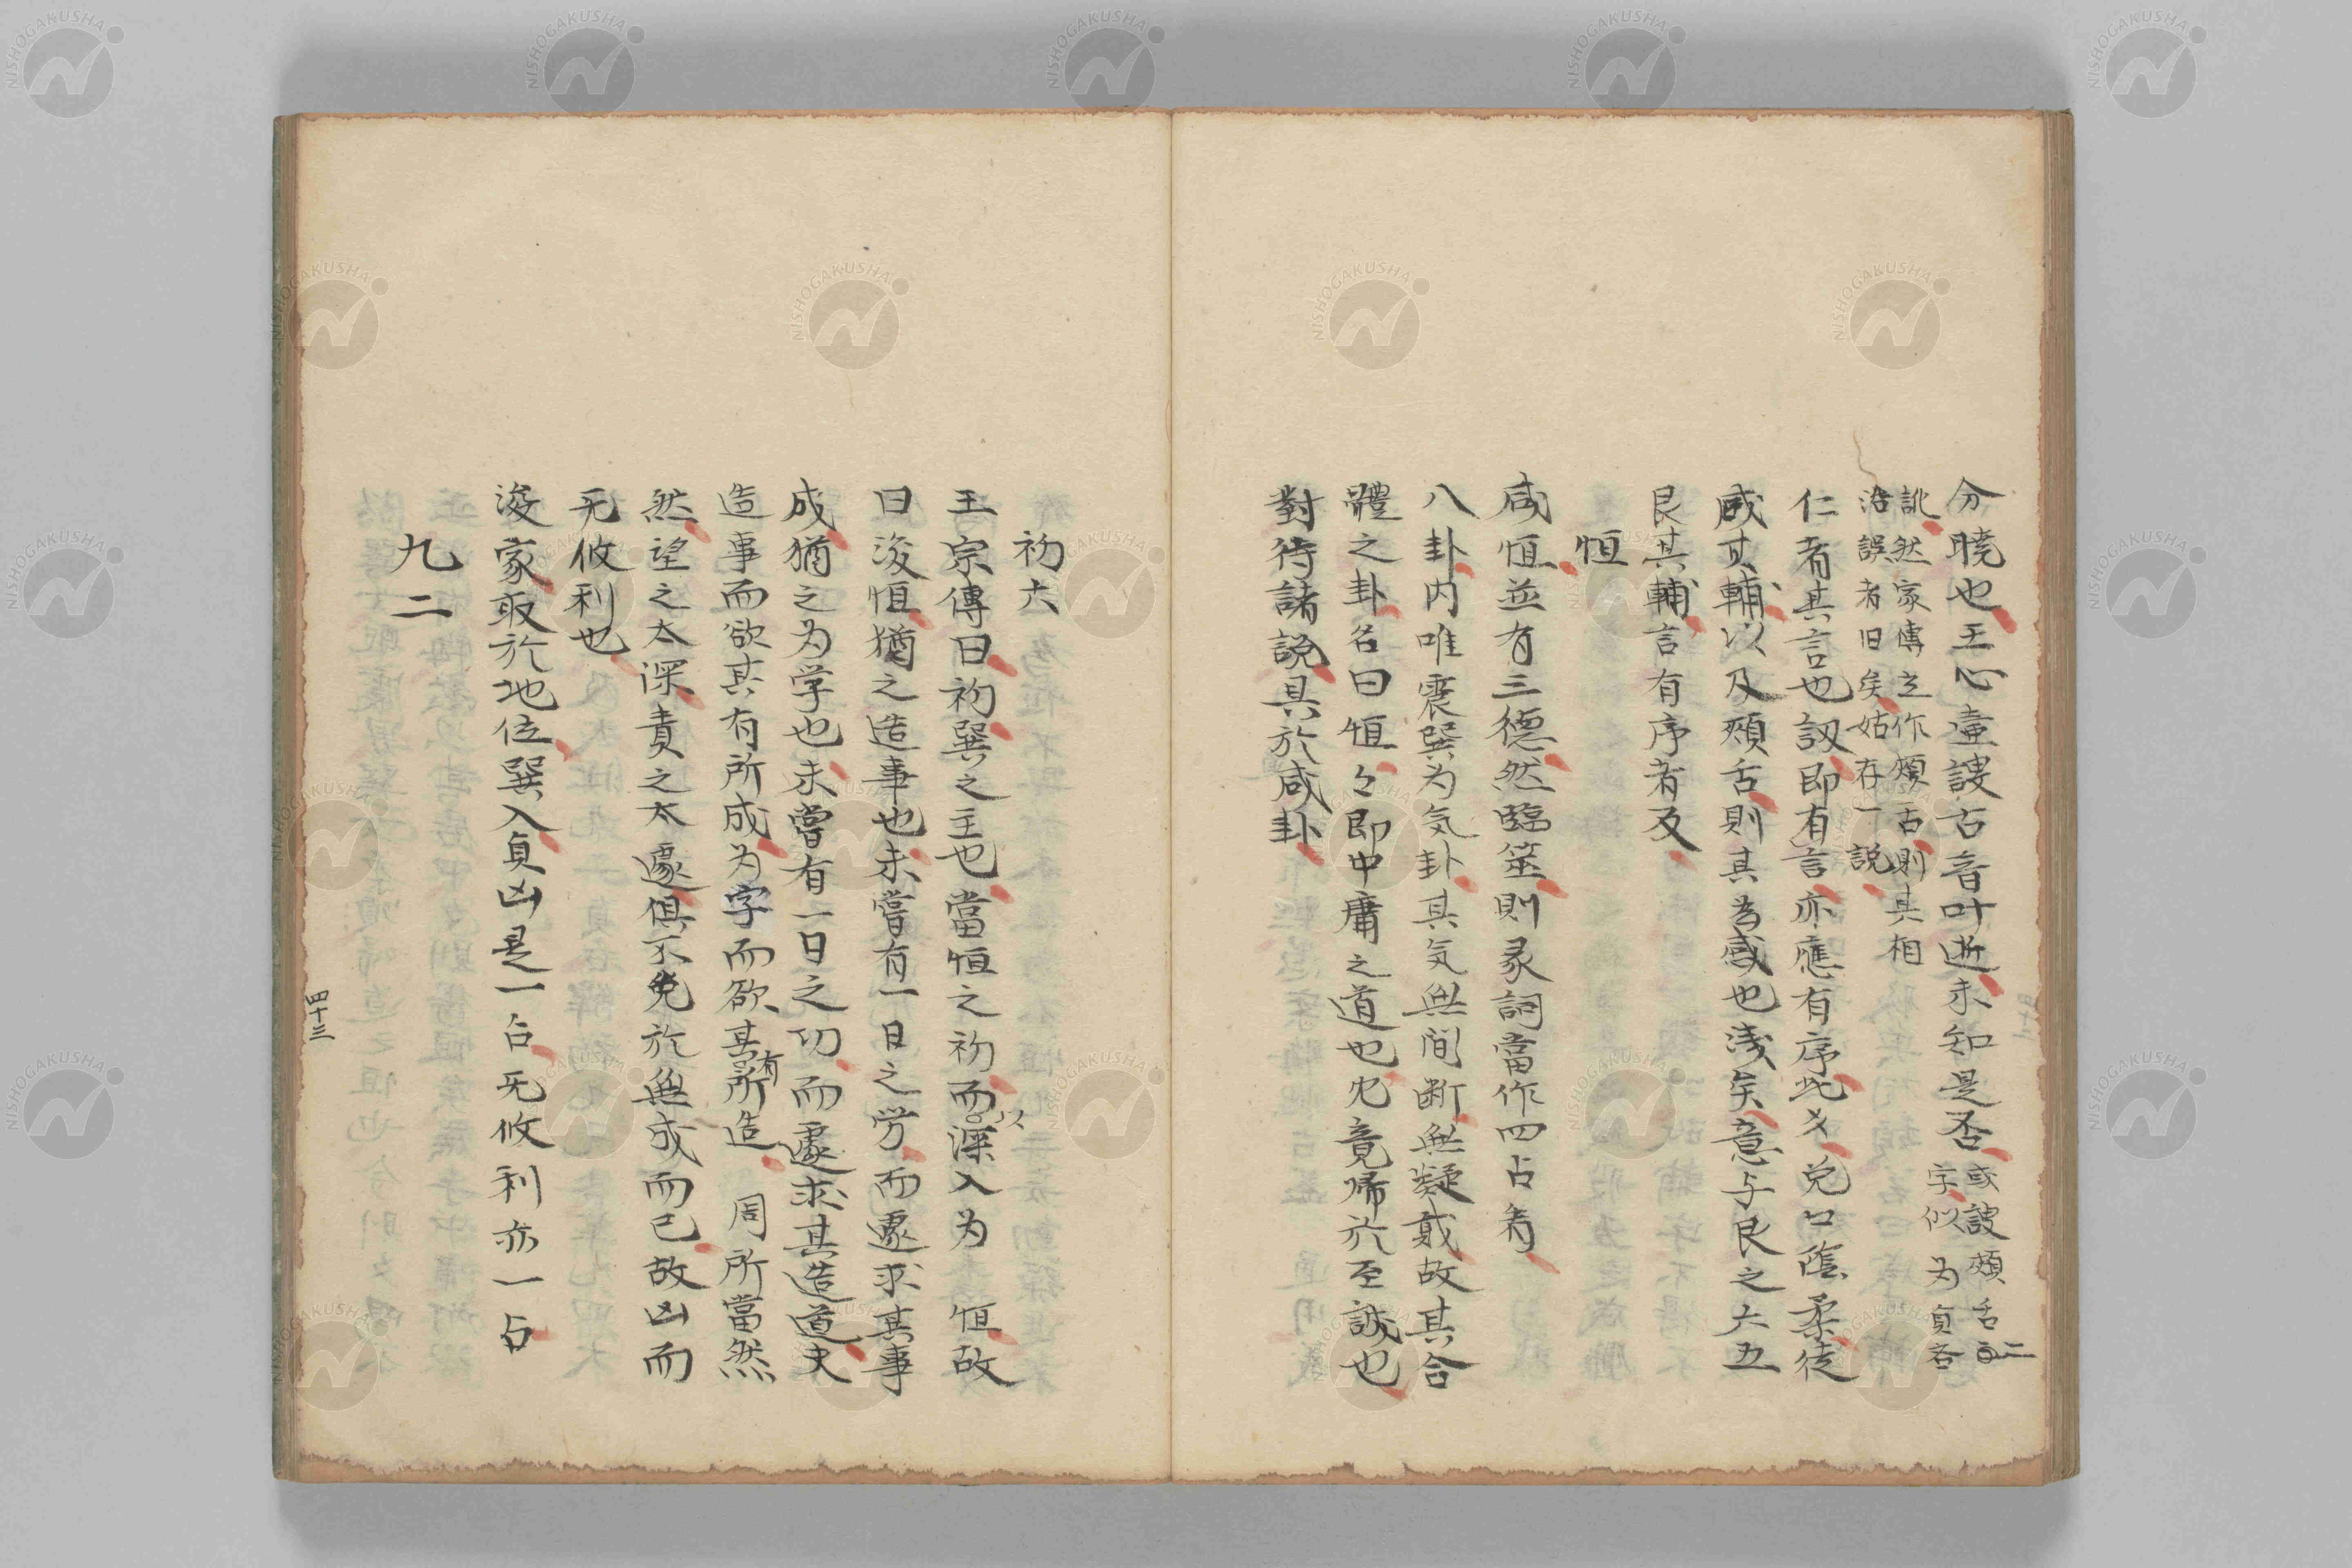 分曉也王心壹謏古音叶逝未知是否或謏頰舌二
字似为貞吝
訛然家傳立作頰舌則其相
沿誤者旧矣姑存一說
仁者其言也訒即有言亦應有序此爻兑口陰柔徒
咸其輔以及頰舌則其為感也浅矣意与艮之六五
艮其輔言有序者反
恒
咸恒並有三德然臨筮則彖詞當作四占看
八卦内唯震巽为気卦其気無间断無凝戢故其合
體之卦名曰恒々即中庸之道也究竟帰於至誠也
對待諸說具於咸卦
初六
王宗傳曰初巽之主也當恒之初而以深入为恒故
曰浚恒猶之造事也未嘗有一日之労而遽求其事
成猶之为学也未嘗有一日之功而遽求其造道夫
造事而欲其有所成为学而欲其有所造固所當然
然望之太深責之太遽俱不免於無成而已故凶而
无攸利也
浚家取於地位巽入貞凶是一占无攸利亦一占
九二
四十三
NISHOGAKUSHA